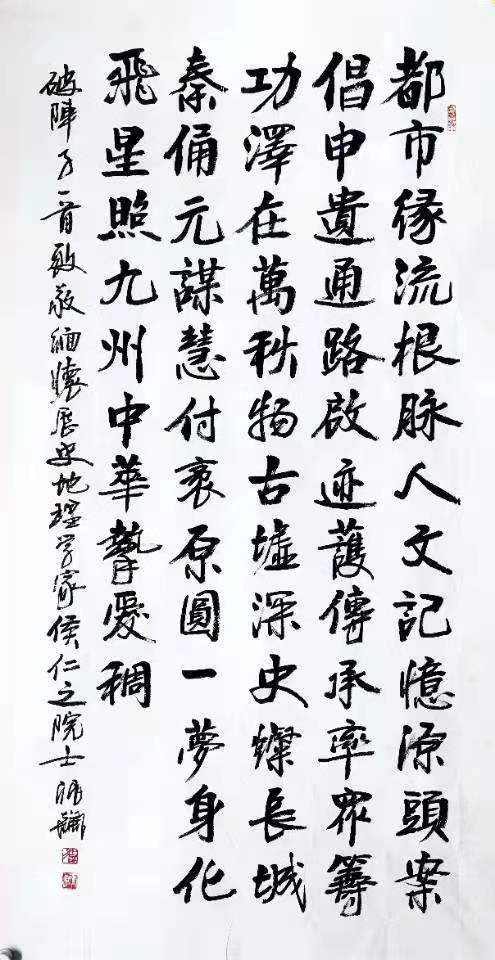 都市缘流根脉人文記憶源頭案
倡申遺通路啟迹護傳承率眾籌
功澤在萬秋物古墟深史璨長城
秦俑元謀慧付衷原圓一夢身化
飛星照九州中華摯愛稠
破陣子一首致敬緬懷歷史地理学家侯仁之院士